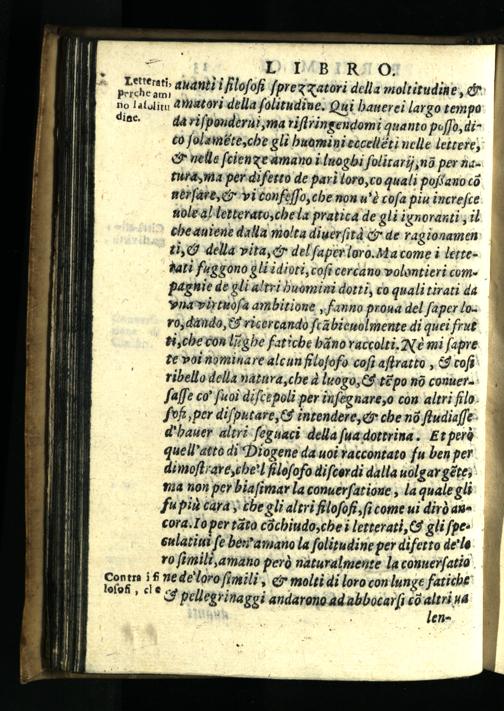 LIBRO.
Letterati,
perche ami
no la solitu
dine.
auanti i filosofi sprezzatori della moltitudine, &
amatori della solitudine. Qui hauerei largo tempo
da risponderui, ma ristringendomi quanto posso, di-
co solamẽte, che gli huomini eccellẽti nelle lettere,
& nelle scienze amano i luoghi solitarij, nõ per na-
tura, ma per difetto de pari loro, co quali possano cõ
uersare, & vi confesso, che non u'è cosa piu incresce
uole al letterato, che la pratica de gli ignoranti, il
che auiene dalla molta diuersità & de ragionamen
ti, & della vita, & del saper loro. Ma come i lette-
rati fuggono gli idioti, cosi cercano volontieri com-
pagnie de gli altri huomini dotti, co quali tirati da
vna virtuosa ambitione, fanno proua del saper lo-
ro, dando, & ricercando scãbieuolmente di quei frut
ti, che con lũghe fatiche hãno raccolti. Nè mi sapre
te voi nominare alcun filosofo cosi astratto, & cosi
ribello della natura, che à luogo, & tẽpo nõ conuer-
sasse co' suoi discepoli per insegnare, o con altri filo
sofi, per disputare, & intendere, & che nõ studiasse
d'hauer altri seguaci della sua dottrina. Et però
quell'atto di Diogene da uoi raccontato fu ben per
dimostrare, che'l filosofo discordi dalla uolgar gẽte,
ma non per biasimar la conuersatione, la quale gli
fu più cara, che gli altri filosofi, si come ui dirò an-
cora. Io per tãto cõchiudo, che i letterati, & gli spe-
culatiui se ben'amano la solitudine per difetto de'lo
ro simili, amano però naturalmente la conuersatio
ne de'loro simili, & molti di loro con lunge fatiche
& pellegrinaggi andarono ad abboccarsi cõ altri ua
Contra i fi
losofi, che
len-